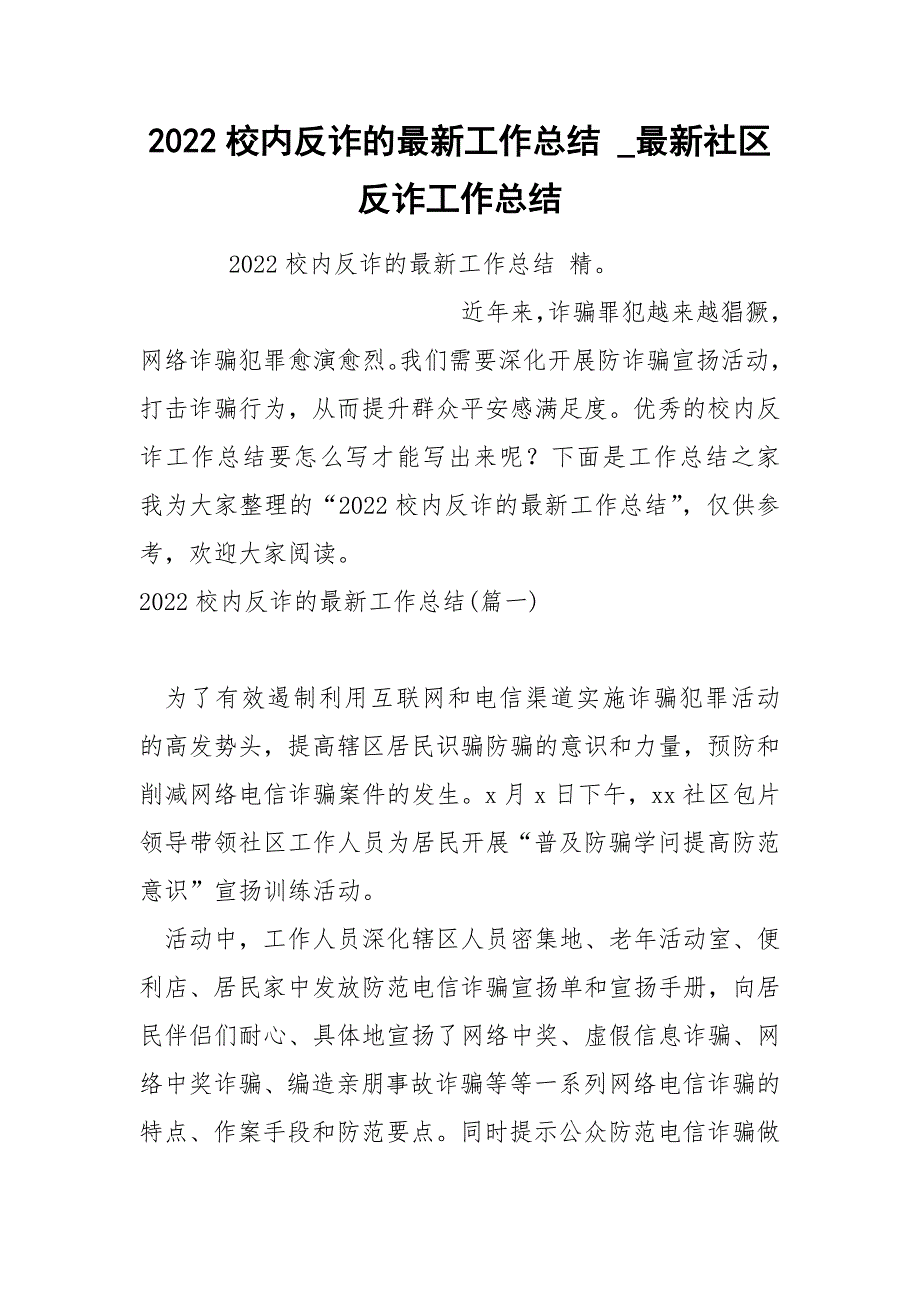 2022校内反诈的最新工作总结 _最新社区
反诈工作总结
2022校内反诈的最新工作总结 精。
近年来，诈骗罪犯越来越猖獗，
网络诈骗犯罪愈演愈烈。我们需要深化开展防诈骗宣扬活动，
打击诈骗行为，从而提升群众平安感满足度。优秀的校内反
诈工作总结要怎么写才能写出来呢？下面是工作总结之家
我为大家整理的“2022校内反诈的最新工作总结”，仅供参
考，欢迎大家阅读。
2022校内反诈的最新工作总结(篇一)
为了有效遏制利用互联网和电信渠道实施诈骗犯罪活动
的高发势头，提高辖区居民识骗防骗的意识和力量，预防和
削减网络电信诈骗案件的发生。x月x日下午，xx社区包片
领导带领社区工作人员为居民开展“普及防骗学问提高防范
意识”宣扬训练活动。
活动中，工作人员深化辖区人员密集地、老年活动室、便
利店、居民家中发放防范电信诈骗宣扬单和宣扬手册，向居
民伴侣们耐心、具体地宣扬了网络中奖、虚假信息诈骗、网
络中奖诈骗、编造亲朋事故诈骗等等一系列网络电信诈骗的
特点、作案手段和防范要点。同时提示公众防范电信诈骗做